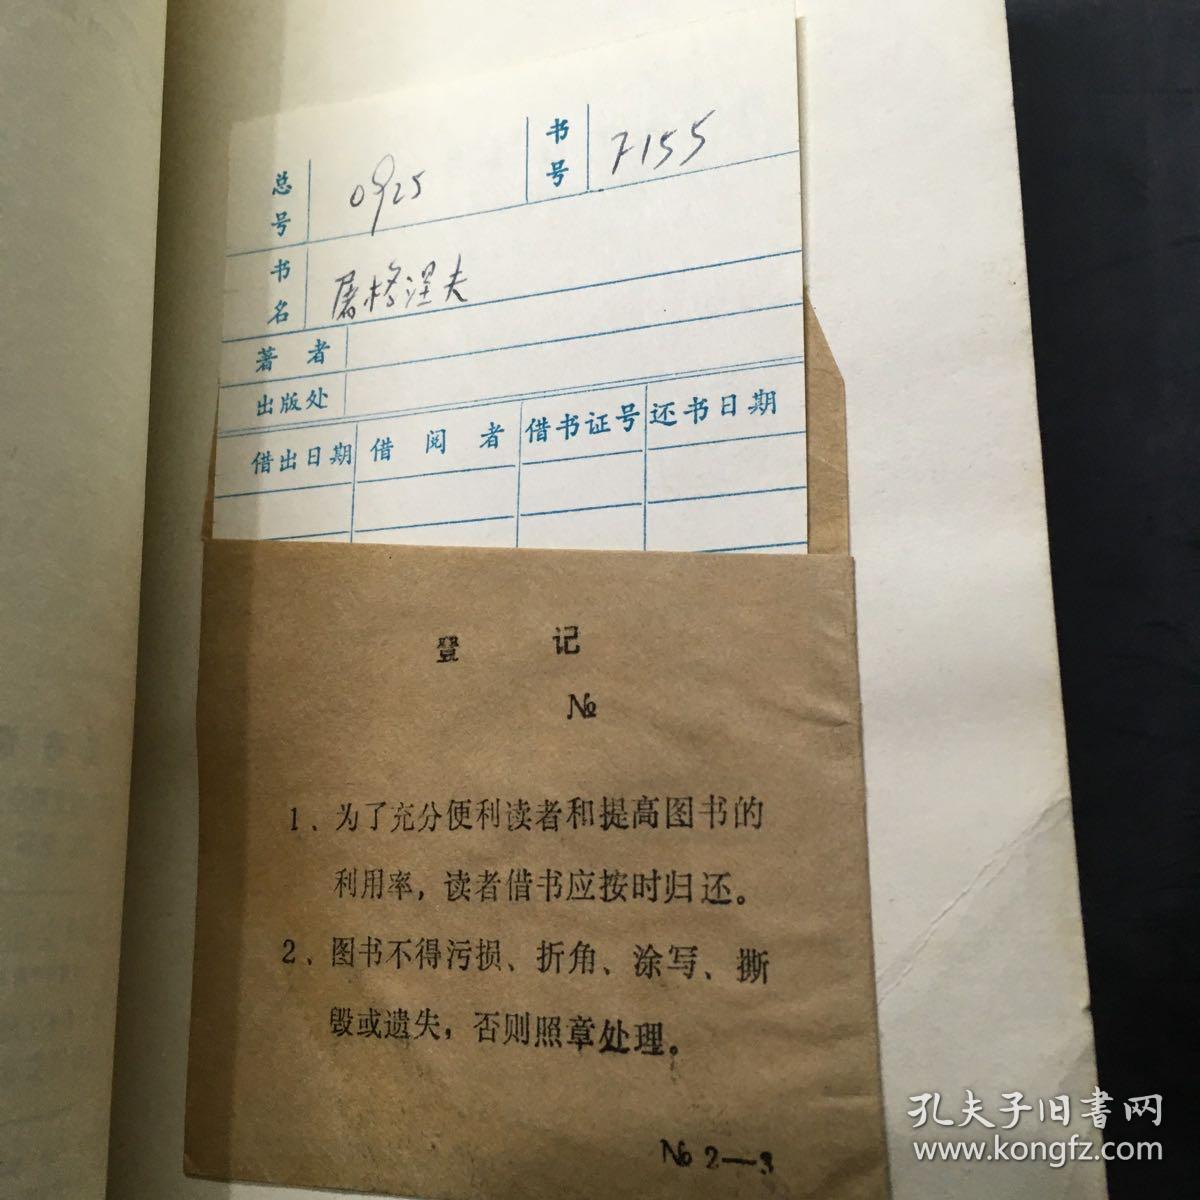 总号 0925 书号 7155
书名 屠格涅夫
著者
出版处
借出日期 借阅者 借书证号 还书日期
登记
№
1、为了充分便利读者和提高图书的
利用率，读者借书应按时归还。
2、图书不得污损、折角、涂写、撕
毁或遗失，否则照章处理。
№ 2—3
孔夫子旧書网
www.kongfz.com